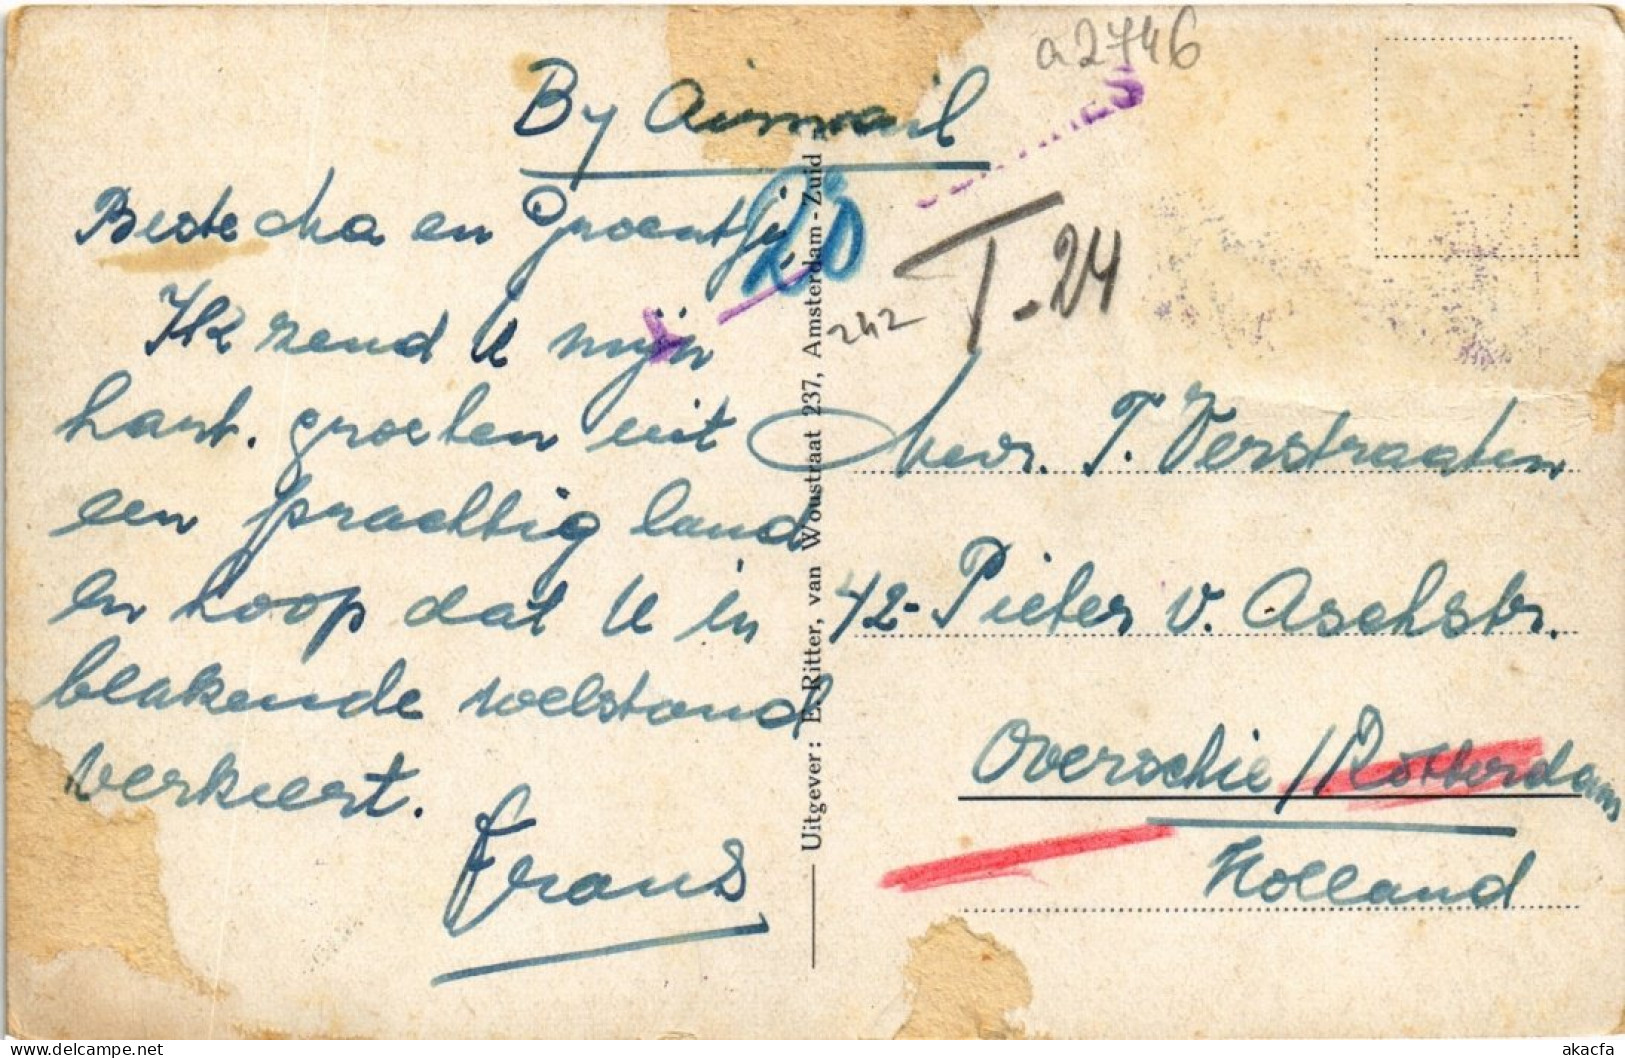 a2746
By Airmail
Beste cha en Groentje,
Ik zend U mijn
hart. groeten uit
een prachtig land
en hoop dat U in
blakende welstand
verkeert.
Frans
20
T-24
242
Uitgever: E. Ritter, van Woustraat 237, Amsterdam-Zuid
Mevr. T. Verstraaten
42- Pieter v. Aschstr.
Overschie / Rotterdam
Holland
akacfa